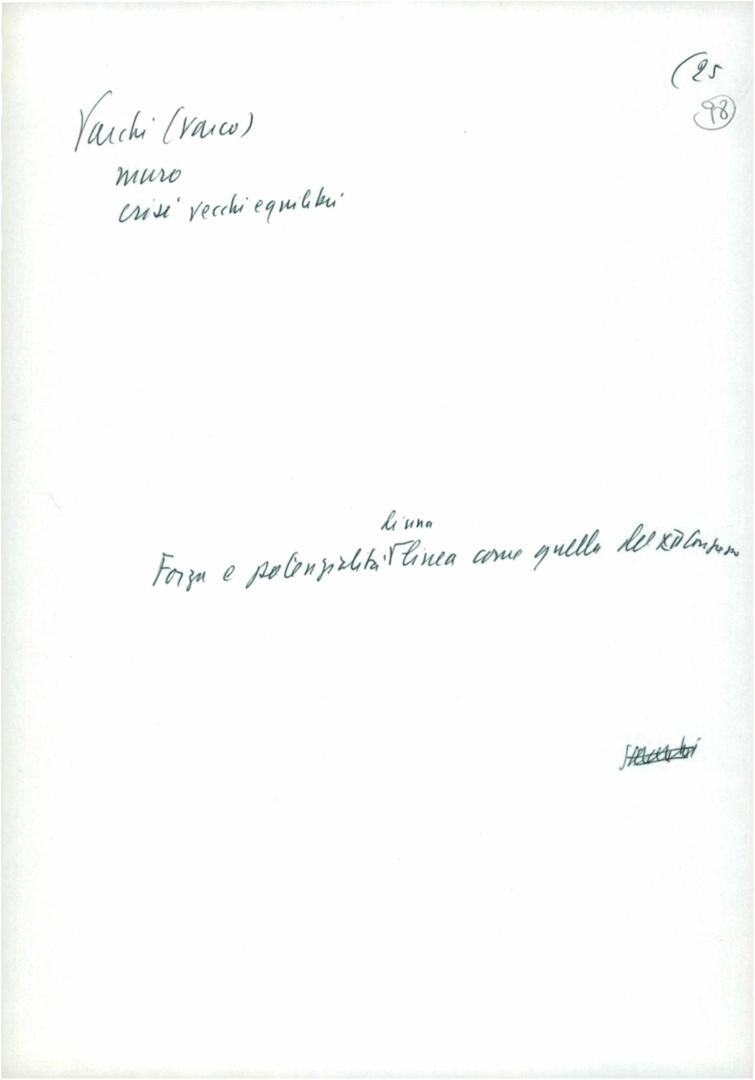 (25
98
Varchi (varco)
muro
crisi vecchi equilibri
di una
Forza e potenzialità linea come quella del XII Congresso